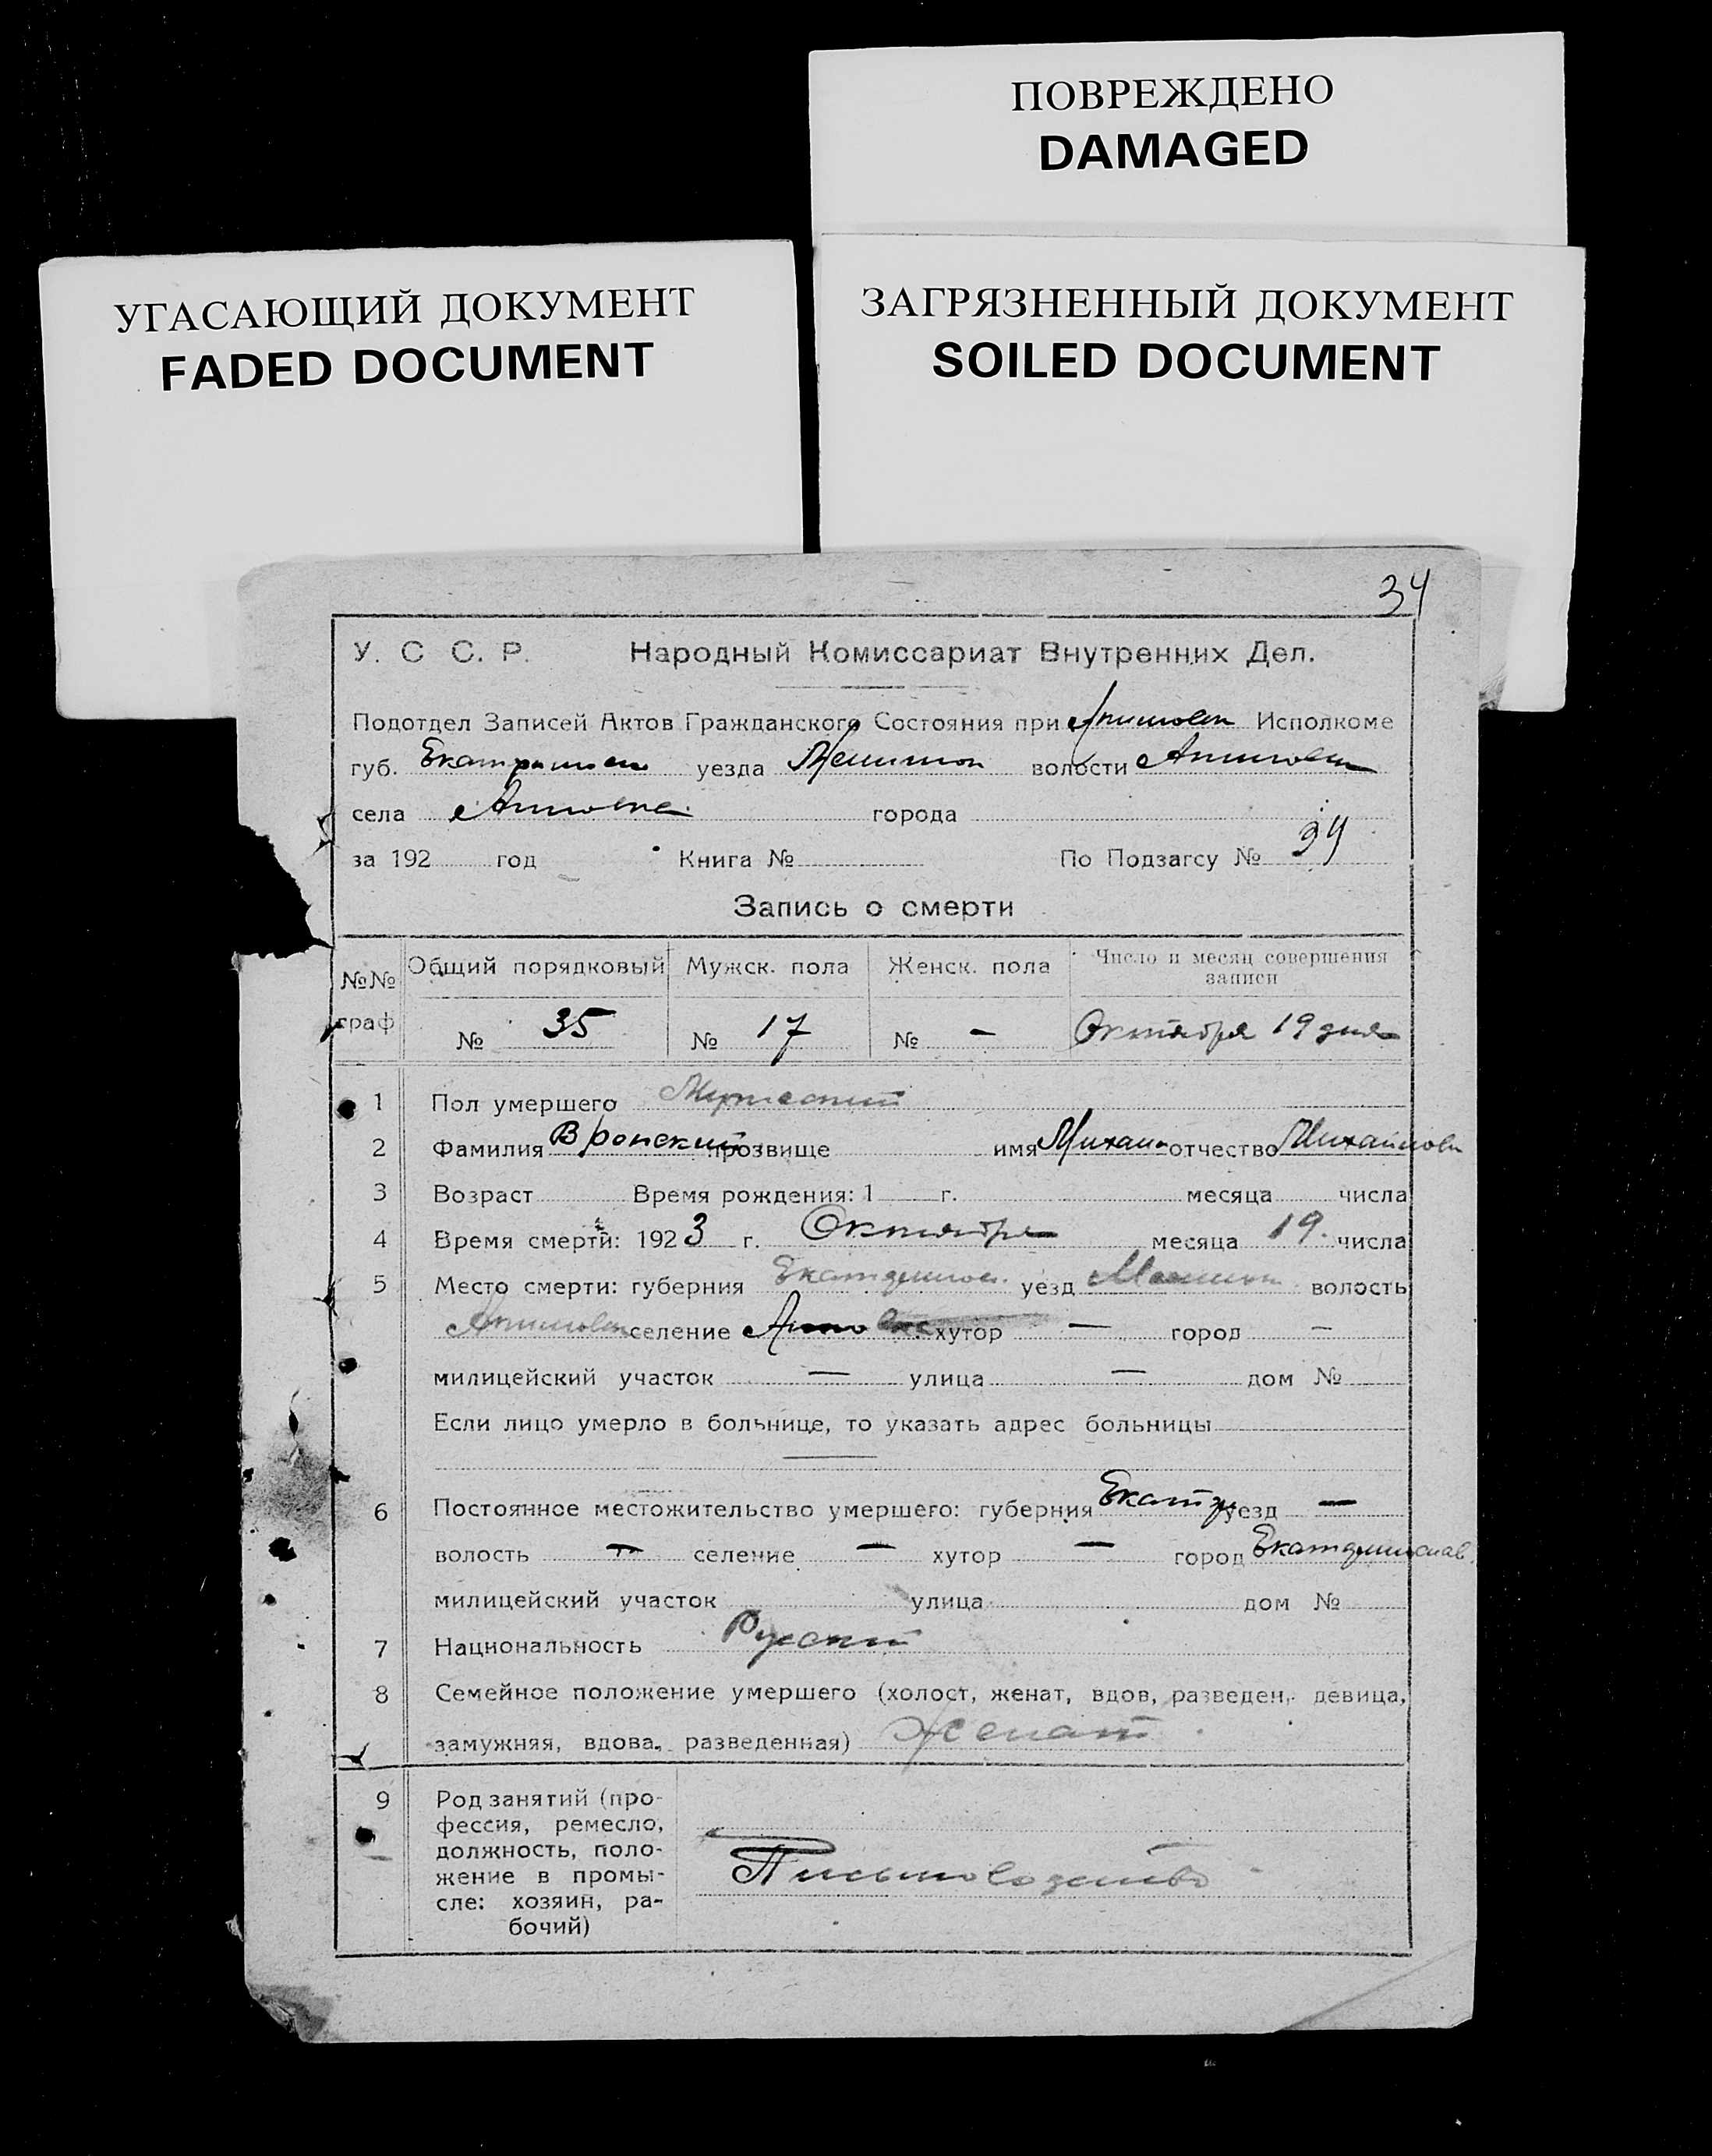 ПОВРЕЖДЕНО
DAMAGED
УГАСАЮЩИЙ ДОКУМЕНТ
FADED DOCUMENT
ЗАГРЯЗНЕННЫЙ ДОКУМЕНТ
SOILED DOCUMENT
34
У. С С. Р. Народный Комиссариат Внутренних Дел.
Подотдел Записей Актов Гражданского Состояния при Исполкоме
губ. уезда волости
села города
за 192 год Книга № По Подзагсу № 34
Запись о смерти
№№ граф Общий порядковый Мужск. пола Женск. пола Число и месяц совершения записи
№ 35 № 17 № — Октября 19 дня
1 Пол умершего Мужеский
2 Фамилия Вронский прозвище имя Михаил отчество Михайлов
3 Возраст Время рождения: 1 г. месяца числа
4 Время смерти: 1923 г. Октября месяца 19 числа
5 Место смерти: губерния Екатеринос. уезд волость
селение хутор — город —
милицейский участок — улица — дом №
Если лицо умерло в больнице, то указать адрес больницы
6 Постоянное местожительство умершего: губерния Екатер уезд —
волость — селение — хутор — город Екатеринослав
милицейский участок улица дом №
7 Национальность Русский
8 Семейное положение умершего (холост, женат, вдов, разведен, девица,
замужняя, вдова, разведенная) Женат
9 Род занятий (про-
фессия, ремесло,
должность, поло-
жение в промы-
сле: хозяин, ра-
бочий)
Письмоводство